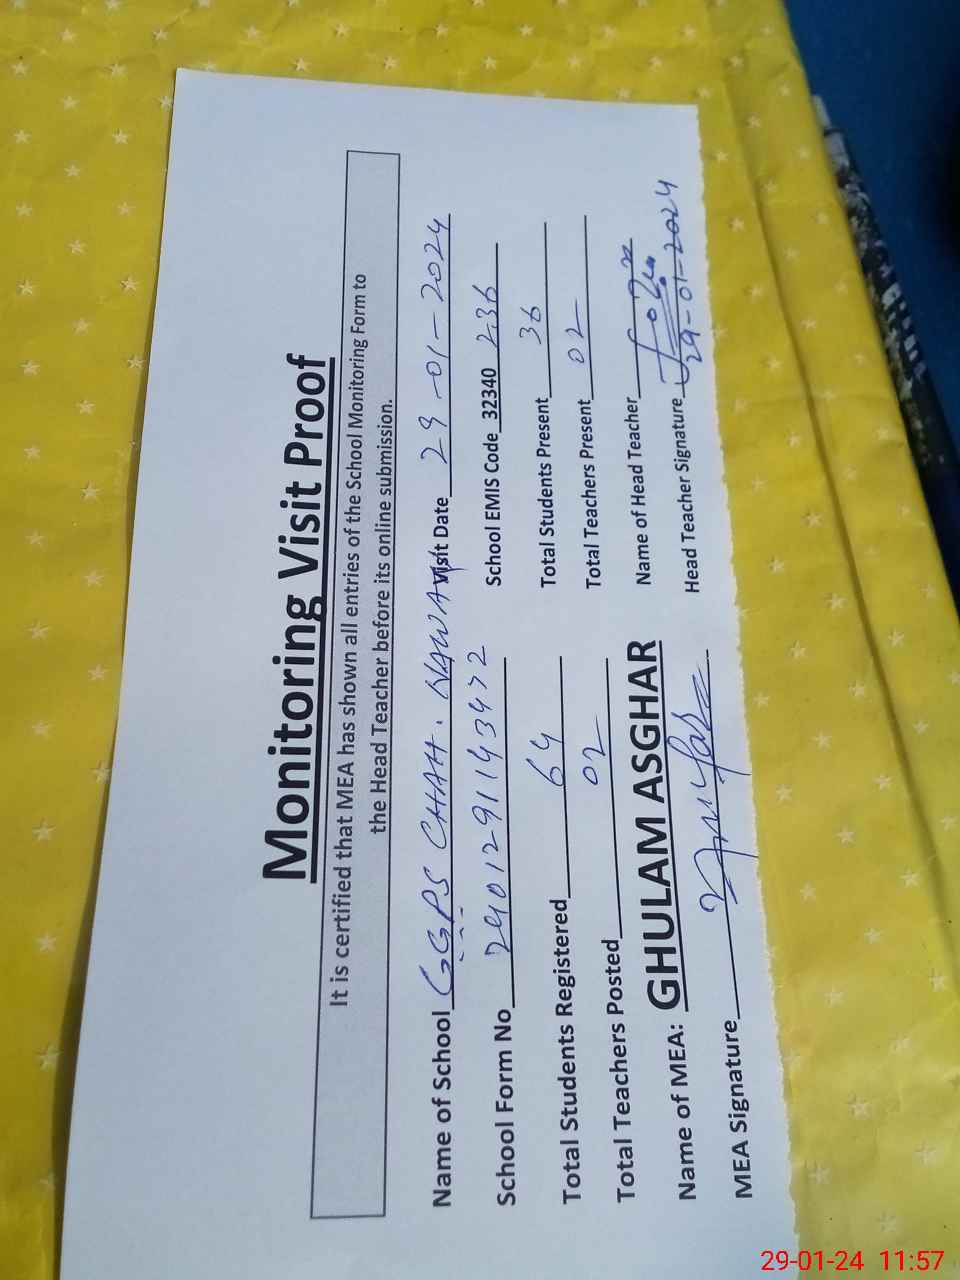 Monitoring Visit Proof
It is certified that MEA has shown all entries of the School Monitoring Form to
the Head Teacher before its online submission.
Name of School GGPS CHAH. NAWAN Visit Date 29-01-2024
School Form No 2901291143472 School EMIS Code 32340 236
Total Students Registered 64 Total Students Present 36
Total Teachers Posted 02 Total Teachers Present 02
Name of MEA: GHULAM ASGHAR Name of Head Teacher
MEA Signature Head Teacher Signature
29-01-2024
29-01-24 11:57